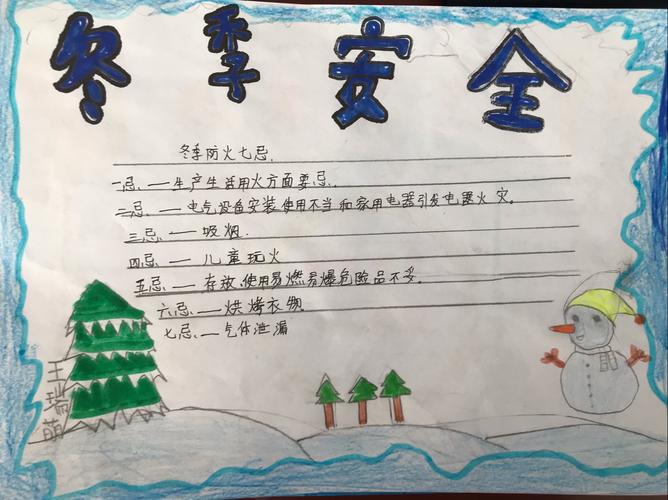 冬季安全
冬季防火七忌.
一忌.—生产生活用火方面要忌.
二忌.—电气设备安装使用不当和家用电器引发电器火灾。
三忌.—吸烟.
四忌—儿童玩火
五忌—存放、使用易燃易爆危险品不妥.
六忌.—烘烤衣物
七忌.—气体泄漏
王瑞萌